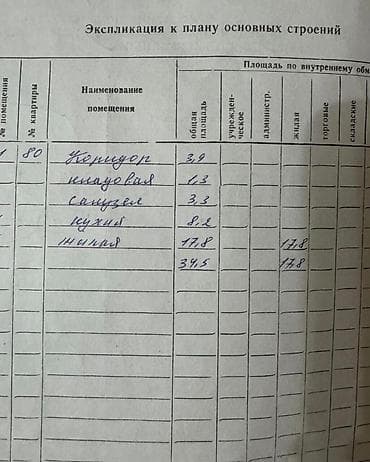 Экспликация к плану основных строений
Площадь по внутреннему обм
№ помещения
№ квартиры
Наименование
помещения
общая
площадь
учрежден-
ческое
администр.
жилая
торговые
складские
1 80 Коридор 3,9
кладовая 1,3
санузел 3,3
кухня 8,2
жилая 17,8 17,8
34,5 17,8